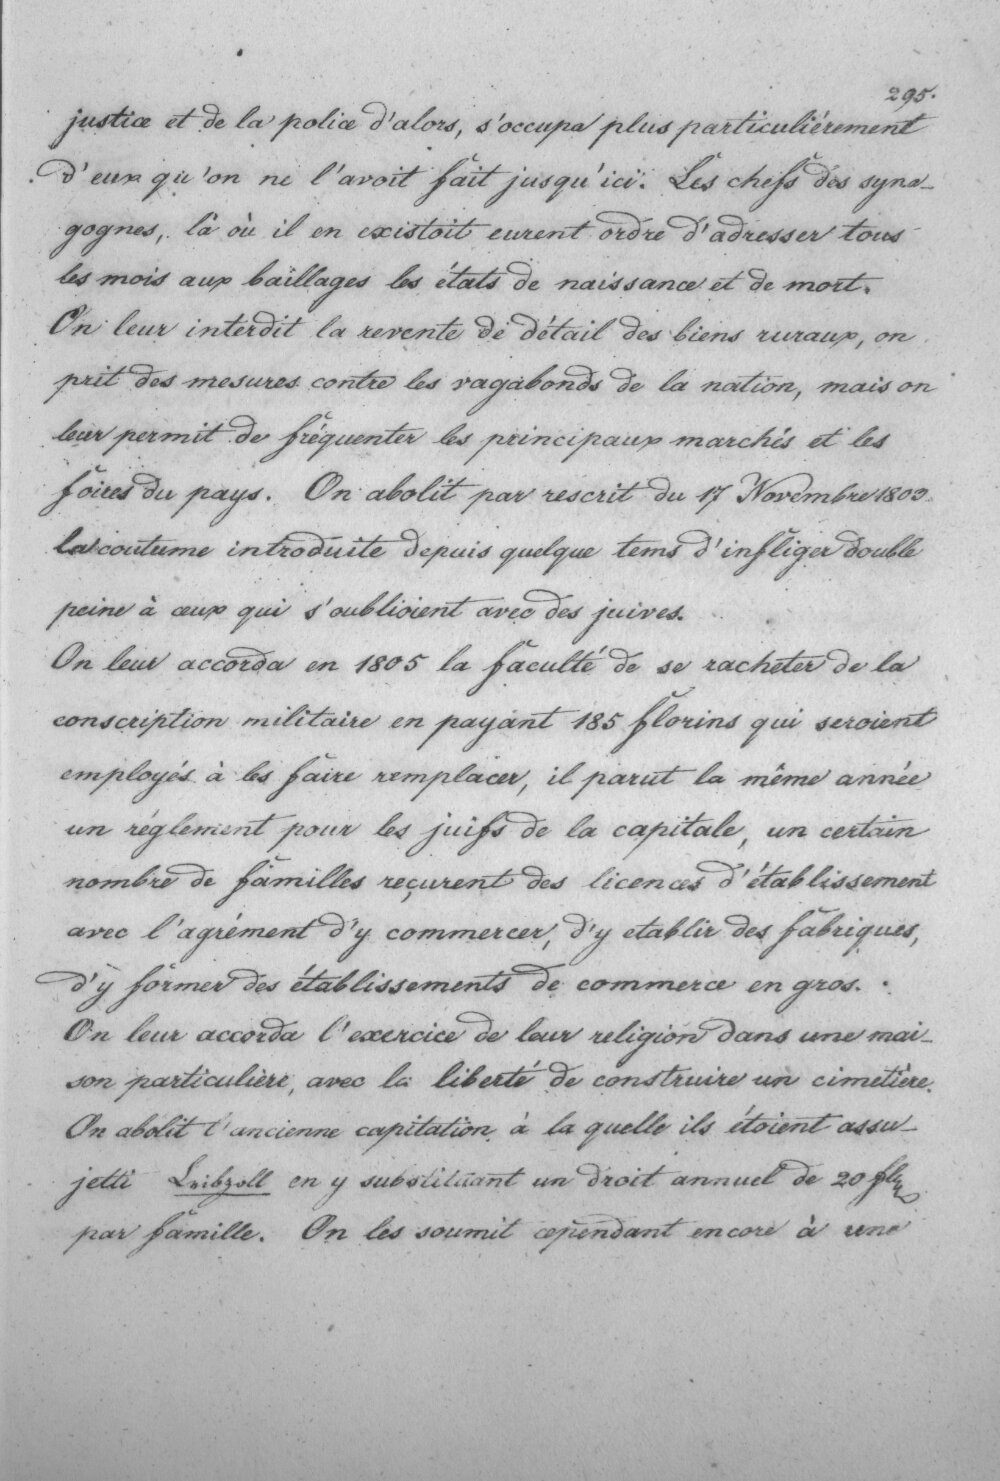 295.
justice et de la police d'alors, s'occupa plus particuliérement
d'eux qu'on ne l'avoit fait jusqu'ici. Les chefs des syna-
gognes, là où il en existoit eurent ordre d'adresser tous
les mois aux baillages les états de naissance et de mort.
On leur interdit la revente de détail des biens ruraux, on
prit des mesures contre les vagabonds de la nation, mais on
leur permit de fréquenter les principaux marchés et les
foires du pays. On abolit par rescrit du 17 Novembre 1803
la coutume introduite depuis quelque tems d'infliger double
peine à ceux qui s'oublioient avec des juives.
On leur accorda en 1805 la faculté de se racheter de la
conscription militaire en payant 185 florins qui seroient
employés à les faire remplacer, il parut la même année
un réglement pour les juifs de la capitale, un certain
nombre de familles reçurent des licences d'établissement
avec l'agrément d'y commercer, d'y etablir des fabriques,
d'y former des établissements de commerce en gros.
On leur accorda l'exercice de leur religion dans une mai-
son particulière, avec la liberté de construire un cimetière.
On abolit l'ancienne capitation à la quelle ils étoient assu-
jetti Leibzoll en y substituant un droit annuel de 20
par famille. On les soumit cependant encore à une